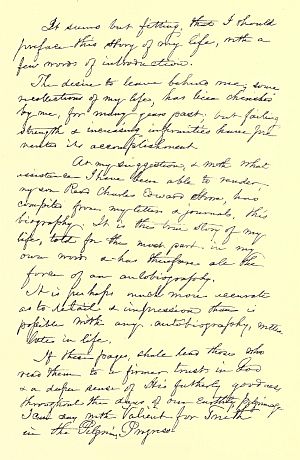 It seems but fitting, that I should
preface this story of my life, with a
few words of introduction.
The desire to leave behind me, some
recollections of my life, has been cherished
by me, for many years past, but failing
strength & increasing infirmities have pre
vented its accomplishment
At my suggestion, & with what
assistance I have been able to render,
my son Revd Charles Edward Stowe, has
compiled from my letters & journals, this
biography. It is the true story of my
life, told for the most part, in my
own words & has therefore all the
force of an autobiography.
It is perhaps much more accurate
as to detail & impression than is
possible with any autobiography, written
late in life.
If these pages, shall lead those who
read them to a firmer trust in God
& a deeper sense of His fatherly goodness
throughout the days of our Earthly pilgrimage
I can say with Valiant for Truth
in the Pilgrims Progress